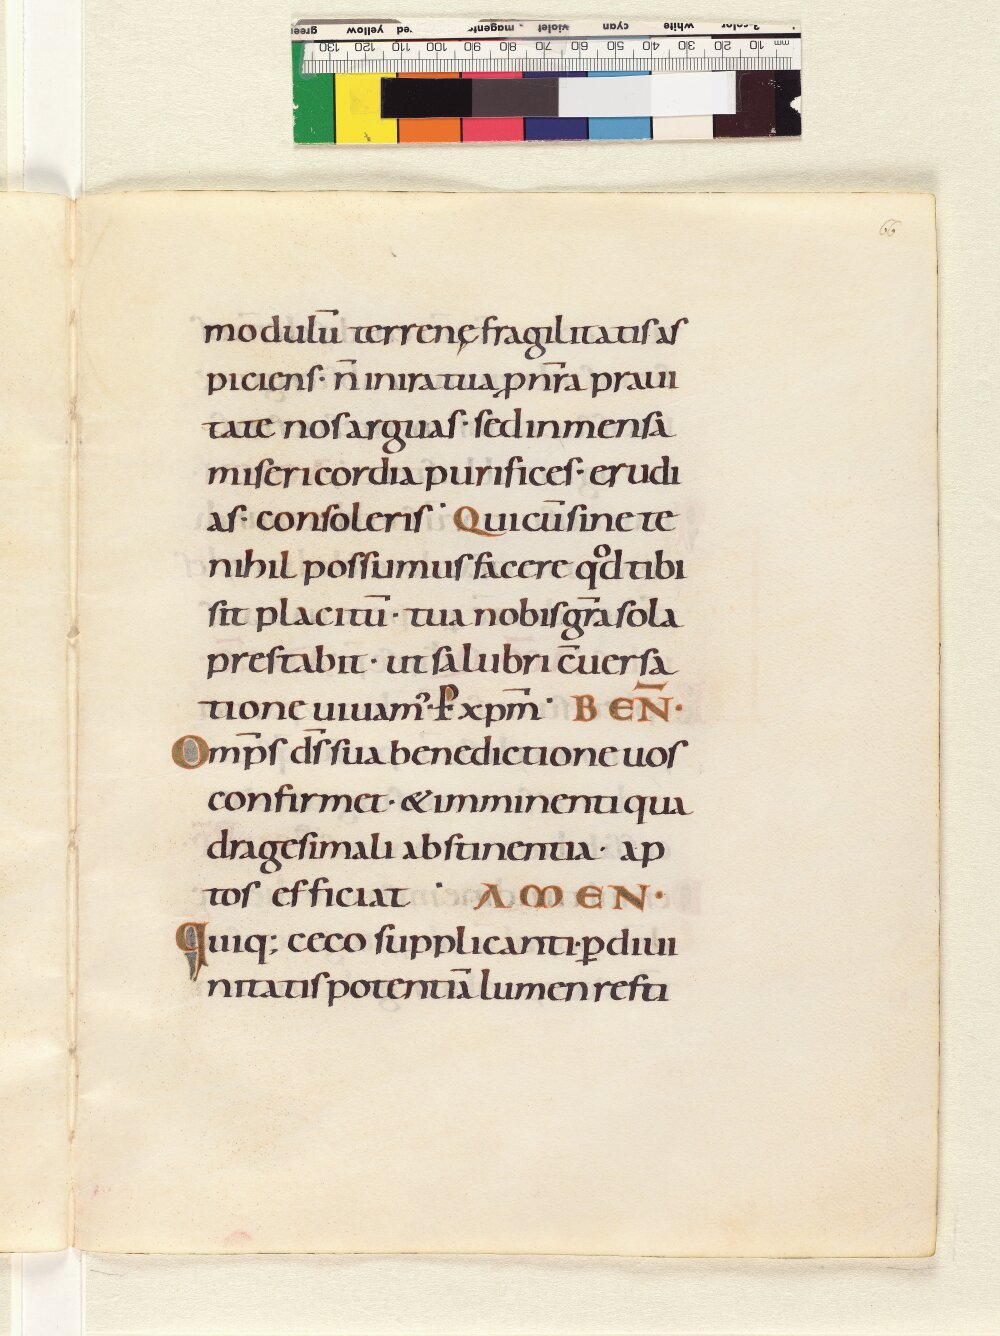 green yellow red magenta violet cyan white 3-color
130 120 110 100 90 80 70 60 50 40 30 20 10 mm
66
modulū terrenę fragilitatis as
piciens· n̄ in ira tua p̱ nr̄a praui
tate nos arguas· sed inmensa
misericordia purifices· erudi
as· consoleris· Qui cū sine te
nihil possumus facere qd̊ tibi
sit placitū· tua nobis gr̄a sola
prestabit· ut salubri c̄uersa
tione uiuamꝰ· P xpm̄· BEN̄·
Omp̄s ds̄ sua benedictione uos
confirmet· & imminenti qua
dragesimali abstinentia· ap
tos efficiat· AMEN·
Quiq; ceco supplicanti· ꝑ diui
nitatis potentiā lumen resti